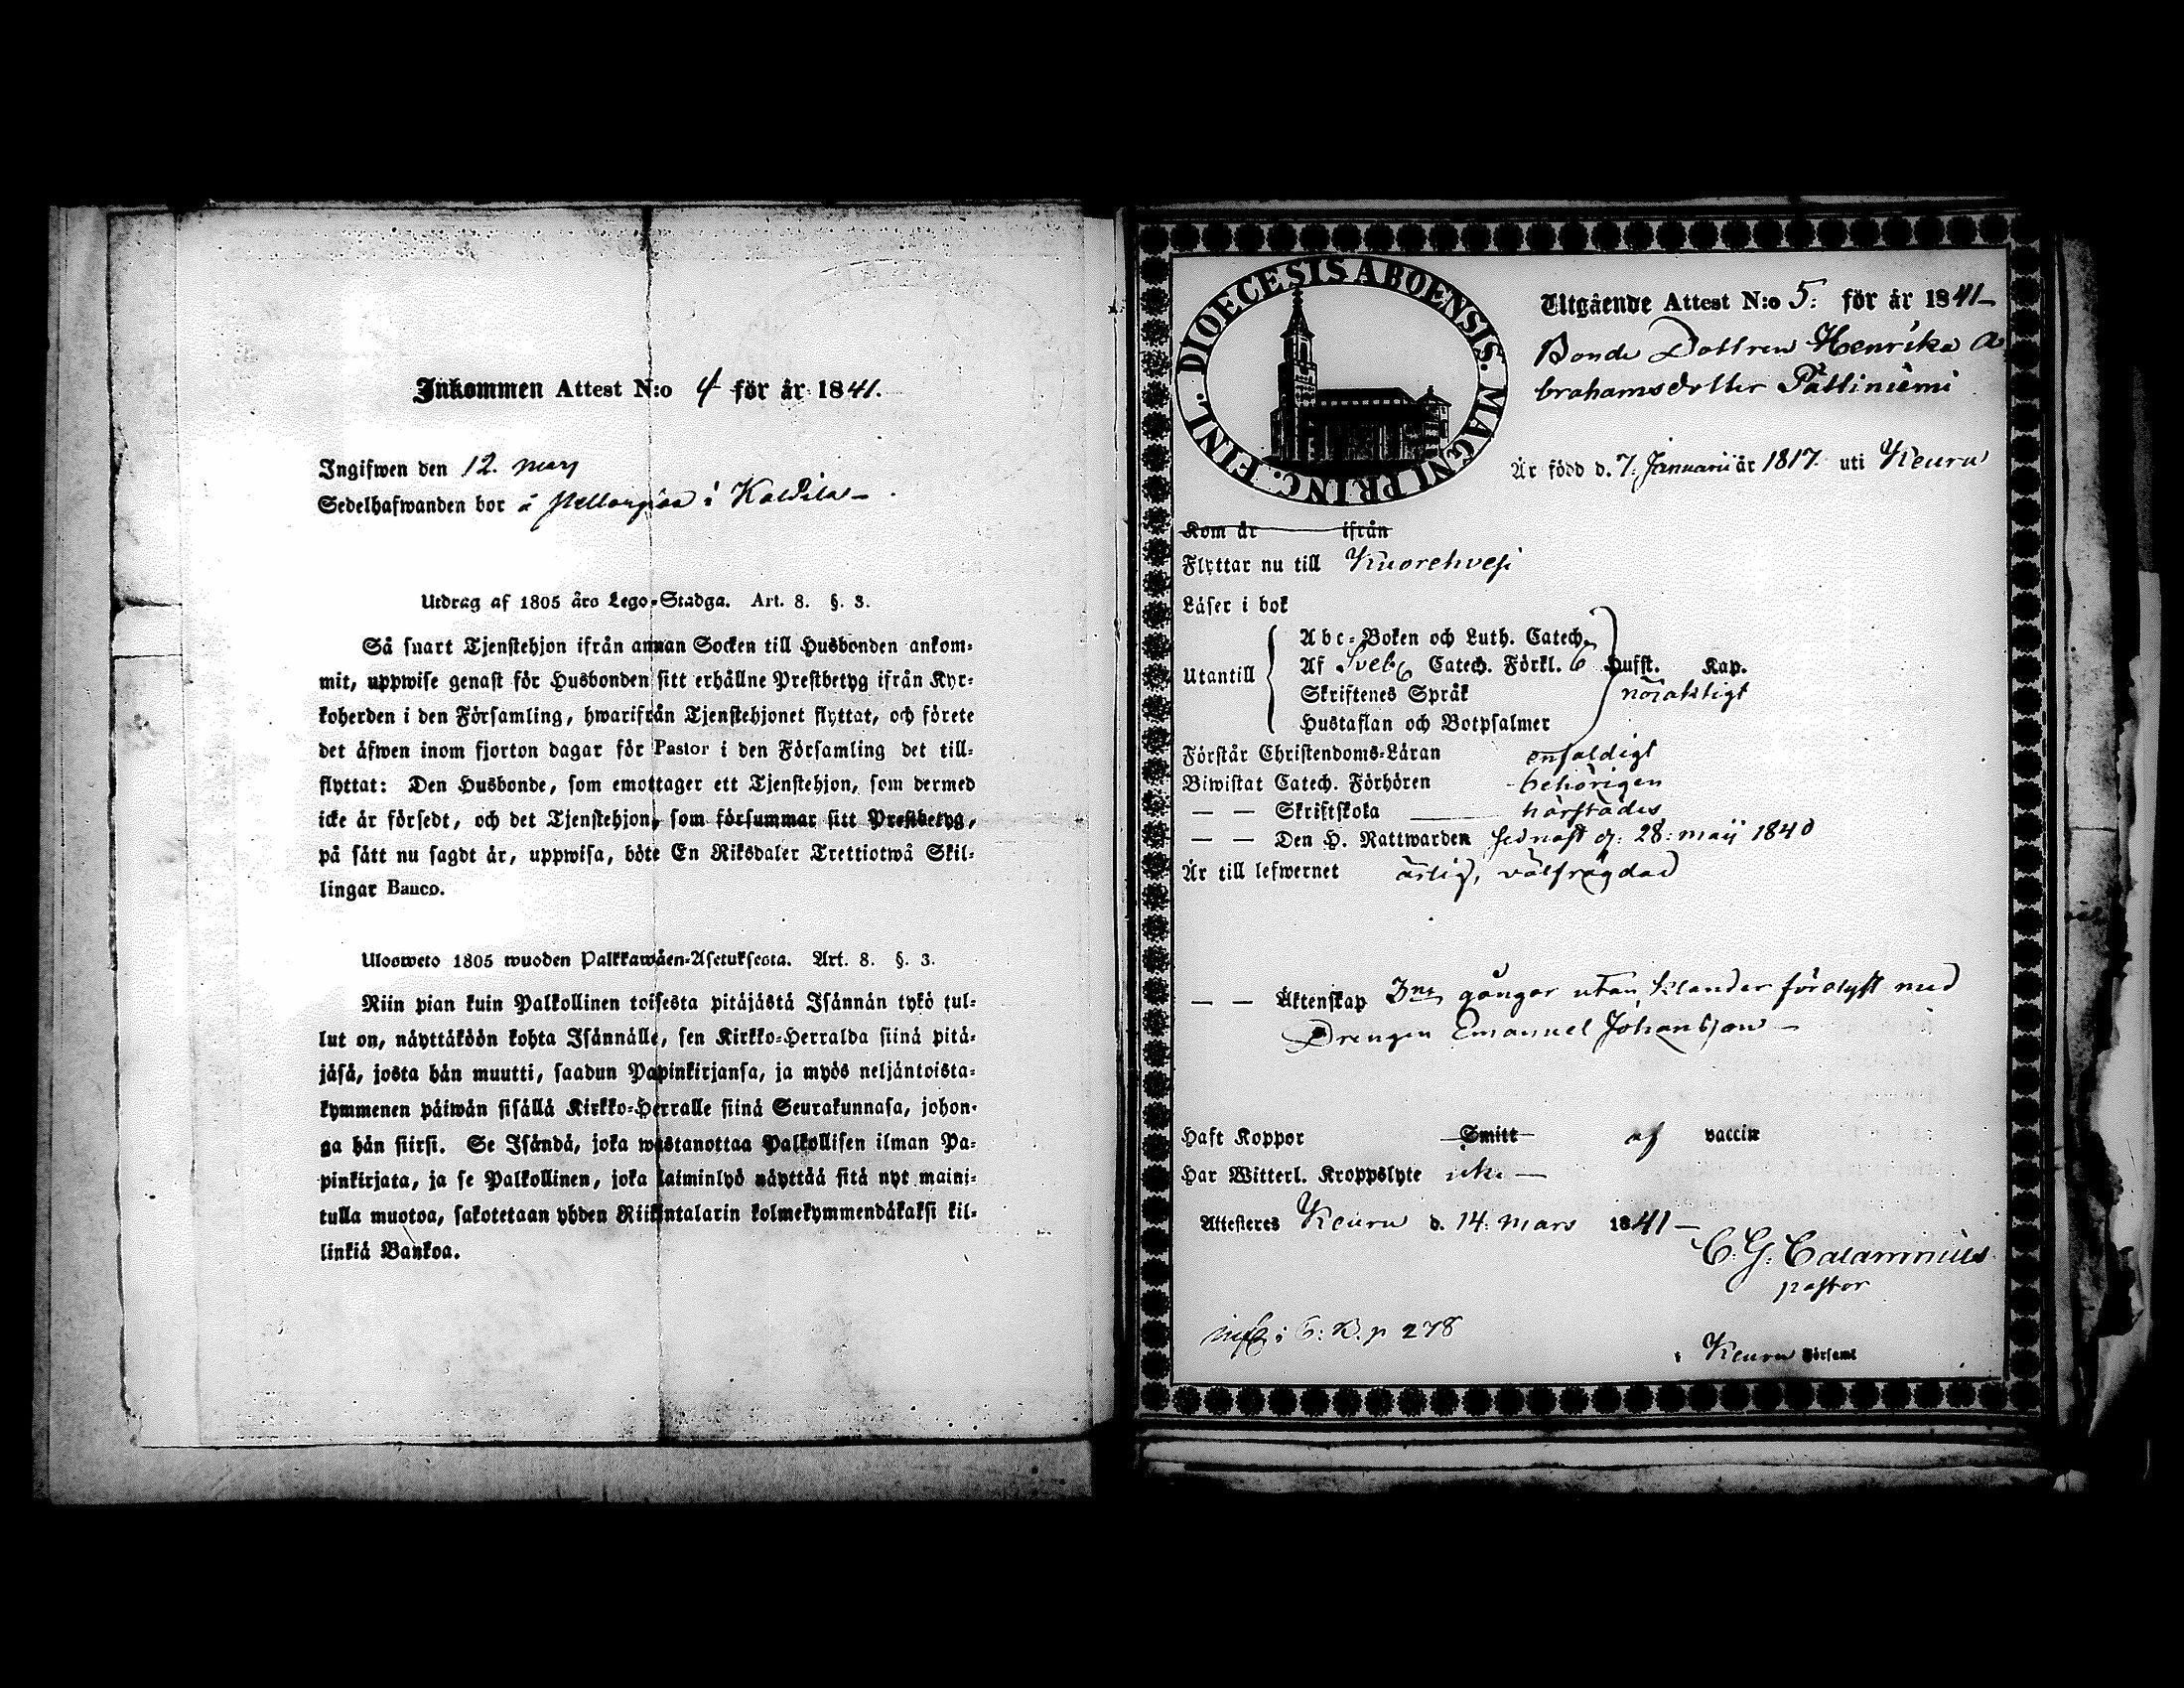 Inkommen Attest N:o 4 för år 1841.
Ingifwen den 12. marz
Sedelhafwanden bor å i Kaldila –
Utdrag af 1805 års Lego-Stadga. Art. 8. §. 3.
Så snart Tjenstehjon ifrån annan Socken till Husbonden ankom-
mit, uppwise genast för Husbonden sitt erhållne Prestbetyg ifrån Kyr-
koherden i den Församling, hwarifrån Tjenstehjonet flyttat, och förete
det äfwen inom fjorton dagar för Pastor i den Församling det till-
flyttat: Den Husbonde, som emottager ett Tjenstehjon, som dermed
icke är försedt, och det Tjenstehjon, som försummar sitt Prestbetyg,
på sätt nu sagdt är, uppwisa, böte En Riksdaler Trettiotwå Skil-
lingar Banco.
Ulosweto 1805 wuoden Palkkawäen-Asetuksesta. Art. 8. §. 3.
Niin pian kuin Palkollinen toisesta pitäjästä Isännän tykö tul-
lut on, näyttäköön kohta Isännälle, sen Kirkko-Herralda siinä pitä-
jäsä, josta hän muutti, saadun Papinkirjansa, ja myös neljäntoista-
kymmenen päiwän sisällä Kirkko-Herralle siinä Seurakunnasa, johon-
ga hän siirsi. Se Isändä, joka wastanottaa Palkollisen ilman Pa-
pinkirjata, ja se Palkollinen, joka laiminlyö näyttää sitä nyt maini-
tulla muotoa, sakotetaan yhden Riikintalarin kolmekymmendäkaksi kil-
linkiä Bankoa.
DIOECESIS ABOENSIS. MAGNI PRINC. FINL.
Utgående Attest N:o 5. för år 1841–
Bonde Dottren Henrika A
brahamsdotter Pättiniemi
Är född d. 7. Januarii år 1817. uti Keuru
Kom år ifrån
Flyttar nu till Kuorehvesi
Läser i bok
Abc-Boken och Luth. Catech.
Utantill Af Sveb. Catech. Förkl. 6 Hufst. Kap.
Skriftenes Språk nöjaktigt
Hustaflan och Botpsalmer
Förstår Christendoms-Läran enfaldigt
Biwistat Catech. Förhören behörigen
— — Skriftskola härstädes
— — Den H. Nattwarden sednast d. 28. maij 1840
Är till lefwernet ärlig, välfrägdad
— — Äktenskap 3ne gångor utan klander förelyst med
Drengen Emanuel Johansson –
Haft Koppor Smitt af vaccin
Har Witterl. Kroppslyte icke –
Attesteres Keuru d. 14. mars 1841 –
C. G. Calamnius
pastor
i C: B. p 278
i Keuru Församl